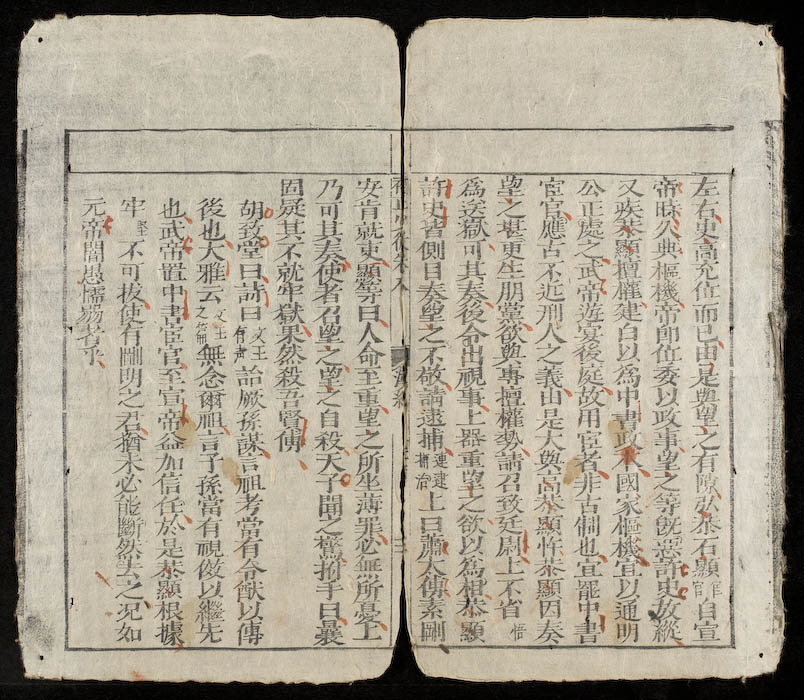 左右史高充位而已由是與望之有隙弘恭石顯許自宣
帝時久典樞機帝即位委以政事望之等既惡許史放縱
又疾恭顯擅權建白以爲中書政本國家樞機宜以通明
公正處之武帝遊宴後庭故用宦者非古制也宜罷中書
宦官應古不近刑人之義由是大與高恭顯忤恭顯因奏
望之堪更生朋黨欲與專擅權勢請召致廷尉上不省悟
爲送獄可其奏後令出視事上器重望之欲以爲相恭顯
許史皆側目奏望之不敬請逮捕逮逮捕治上曰蕭太傅素剛
安肯就吏顯等曰人命至重望之所坐薄罪必無所憂上
乃可其奏使者召望之望之自殺天子聞之驚拊手曰曩
固疑其不就牢獄果然殺吾賢傅
胡致堂曰詩曰文王有聲詒厥孫謀言祖考當有令猷以傳
後也大雅云文王之什無念爾祖言子孫當有視傚以繼先
也武帝置中書宦官至宣帝益加信任於是恭顯根據
牢堅不可拔使有剛明之君猶未必能斷然去之况如
元帝闇愚懦弱者乎